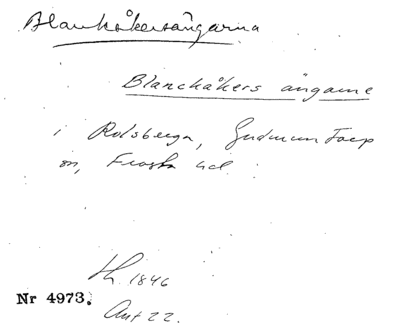 Blankåkersängarna
Blanchåkers ängarne
i Rolsberga, Gudmuntorp
sn, Frosta hd.
Lh. 1846
Nr 4973.
Akt 22.